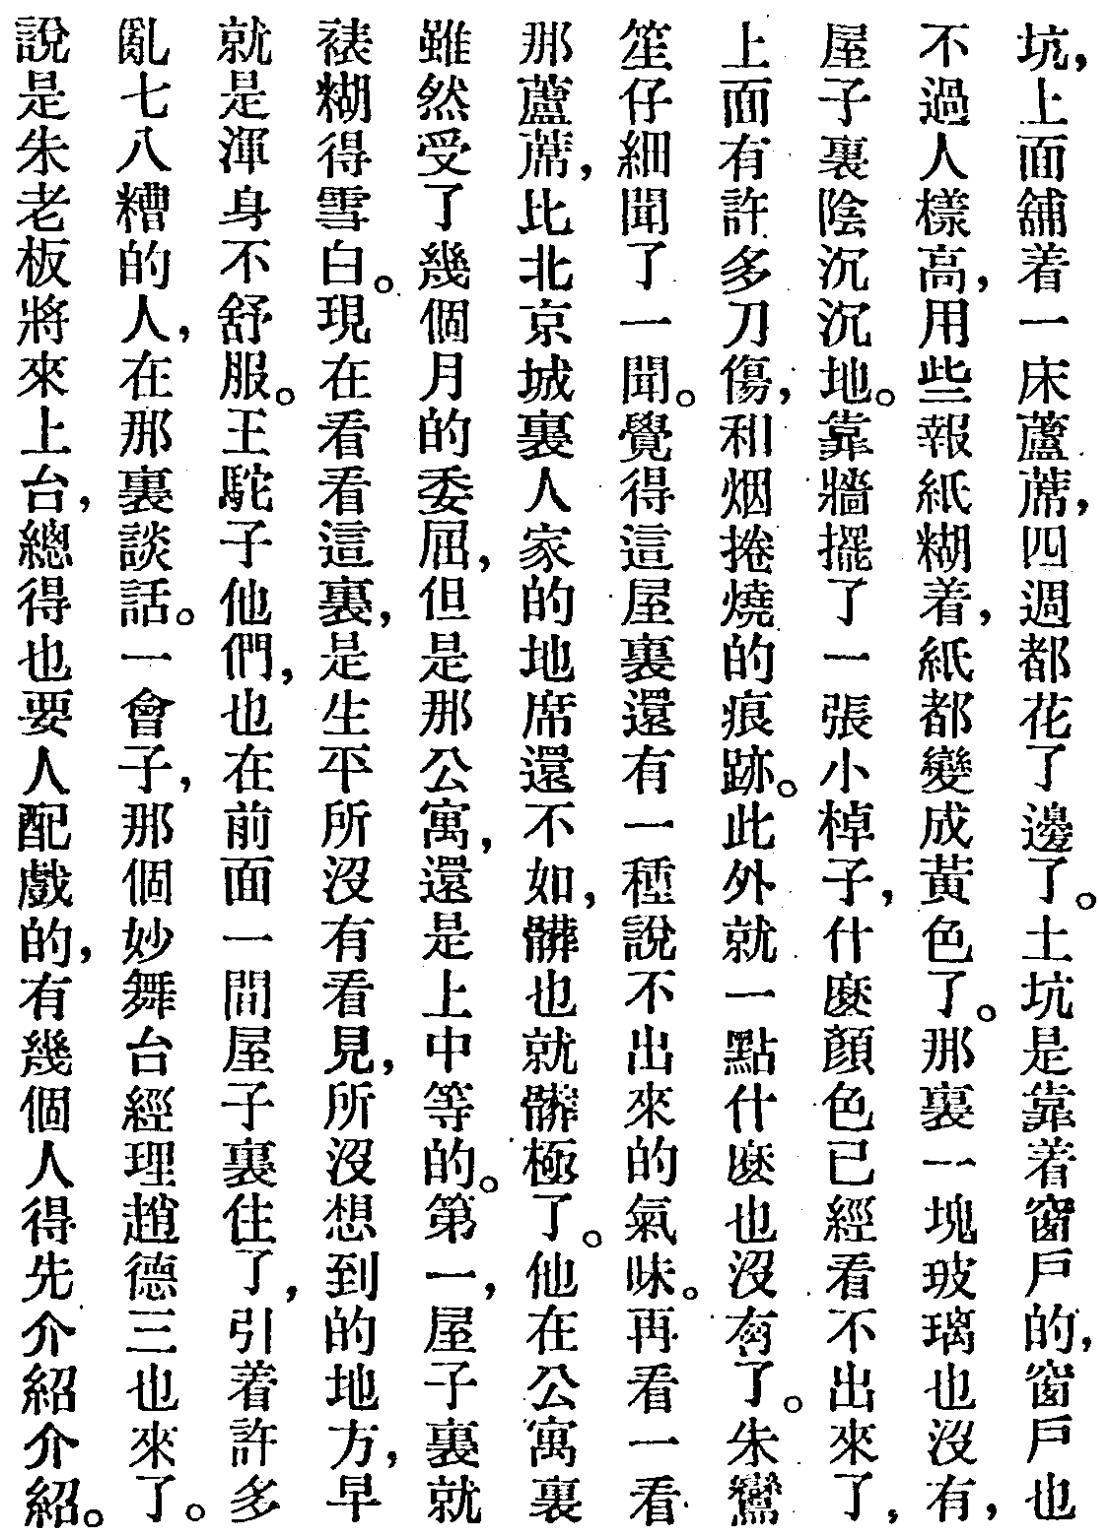 坑，上面舖着一床蘆蓆，四週都花了邊了。土坑是靠着窗戶的，窗戶也
不過人樣高，用些報紙糊着，紙都變成黃色了。那裏一塊玻璃也沒有，
屋子裏陰沉沉地。靠牆擺了一張小棹子，什麼顏色已經看不出來了，
上面有許多刀傷，和烟捲燒的痕跡。此外就一點什麼也沒有了。朱鸞
笙仔細聞了一聞。覺得這屋裏還有一種說不出來的氣味。再看一看
那蘆蓆，比北京城裏人家的地席還不如，髒也就髒極了。他在公寓裏
雖然受了幾個月的委屈，但是那公寓，還是上中等的。第一，屋子裏就
裱糊得雪白。現在看看這裏，是生平所沒有看見，所沒想到的地方，早
就是渾身不舒服。王駝子他們，也在前面一間屋子裏住了，引着許多
亂七八糟的人，在那裏談話。一會子，那個妙舞台經理趙德三也來了。
說是朱老板將來上台，總得也要人配戲的，有幾個人得先介紹介紹。